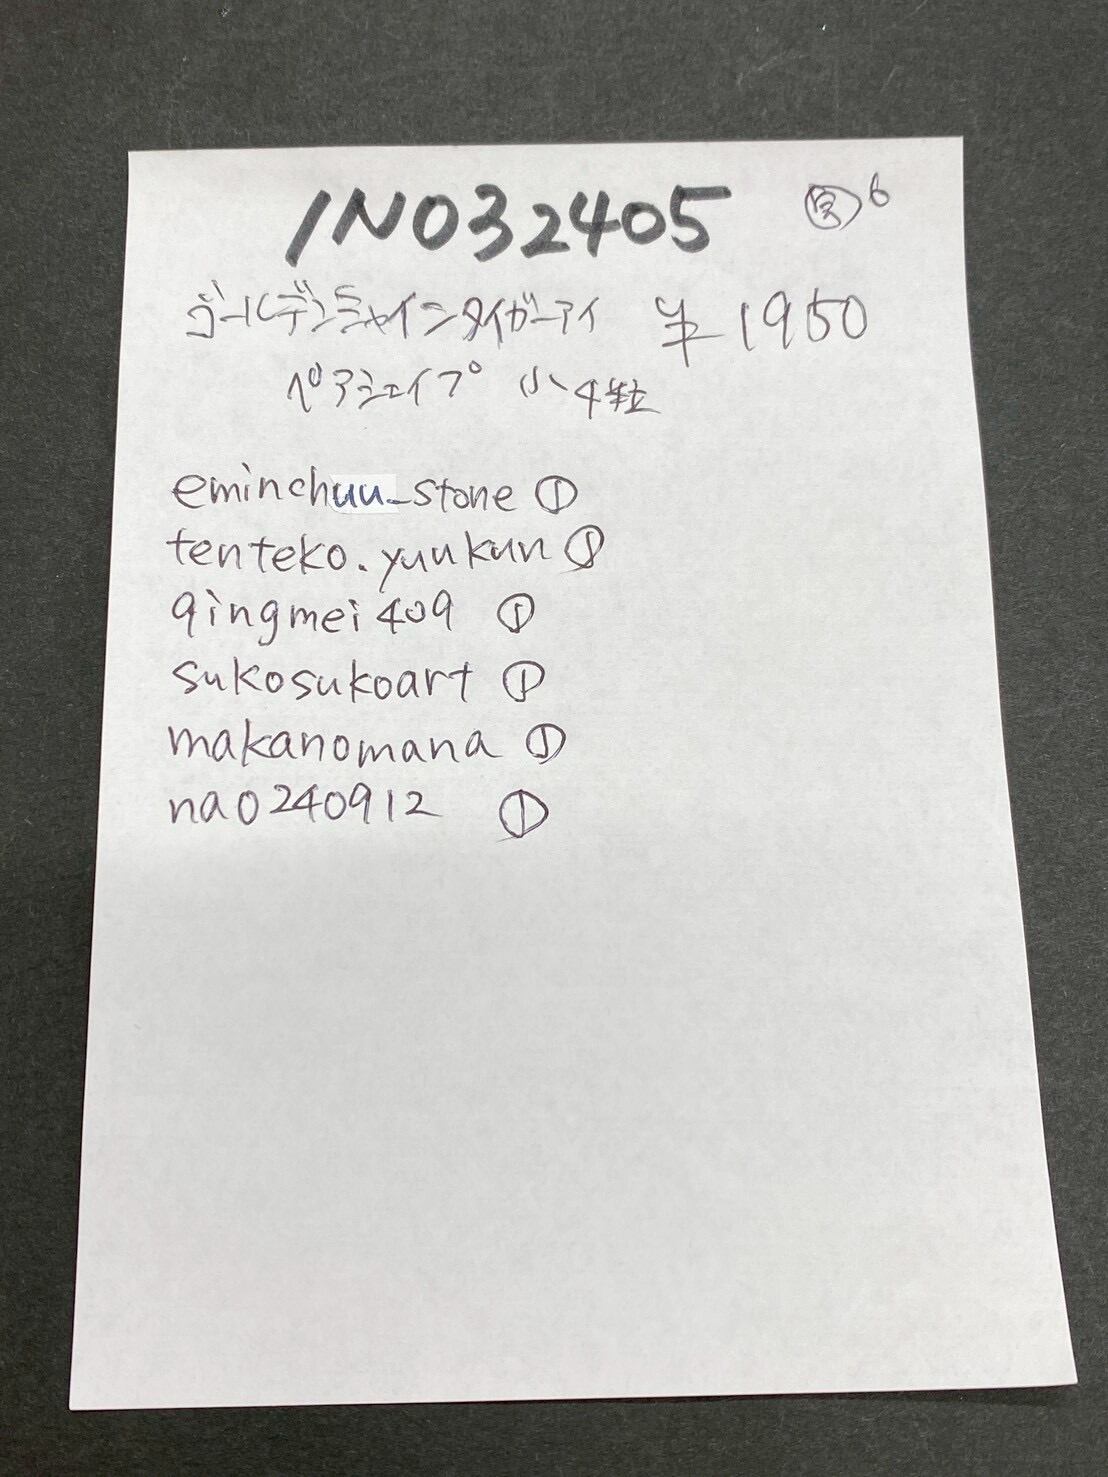 INO32405
ゴールデンシャインタイガーアイ ¥1950
ペアシェイプ 小4粒
eminchuu_stone ①
tenteko.yuukun ①
qingmei409 ①
sukosukoart ①
makanomana ①
nao240912 ①